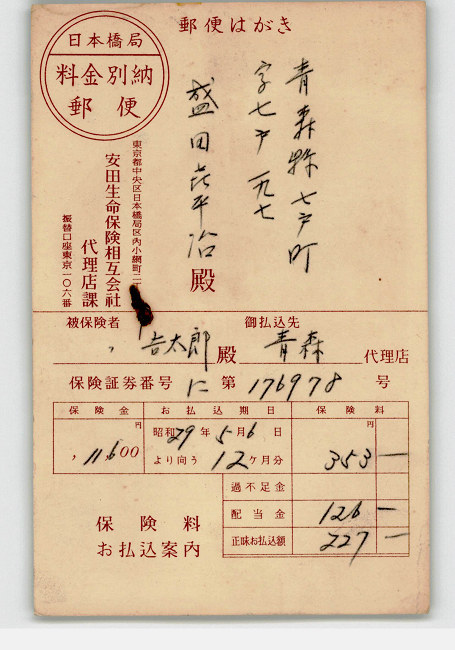 郵便はがき
日本橋局
料金別納
郵便
青森縣七戸町
字七戸 一九七
盛田喜平治殿
東京都中央区日本橋局区内小網町二
安田生命保険相互会社
代理店課
振替口座東京一〇六番
被保険者
吉太郎殿
御払込先
青森代理店
保険証券番号 に 第 176978 号
保険金 お払込期日 保険料
円 昭和29年5月6日 円
11,600 より向う12ヶ月分 353—
過不足金
配当金 126—
正味お払込額 227—
保険料
お払込案内